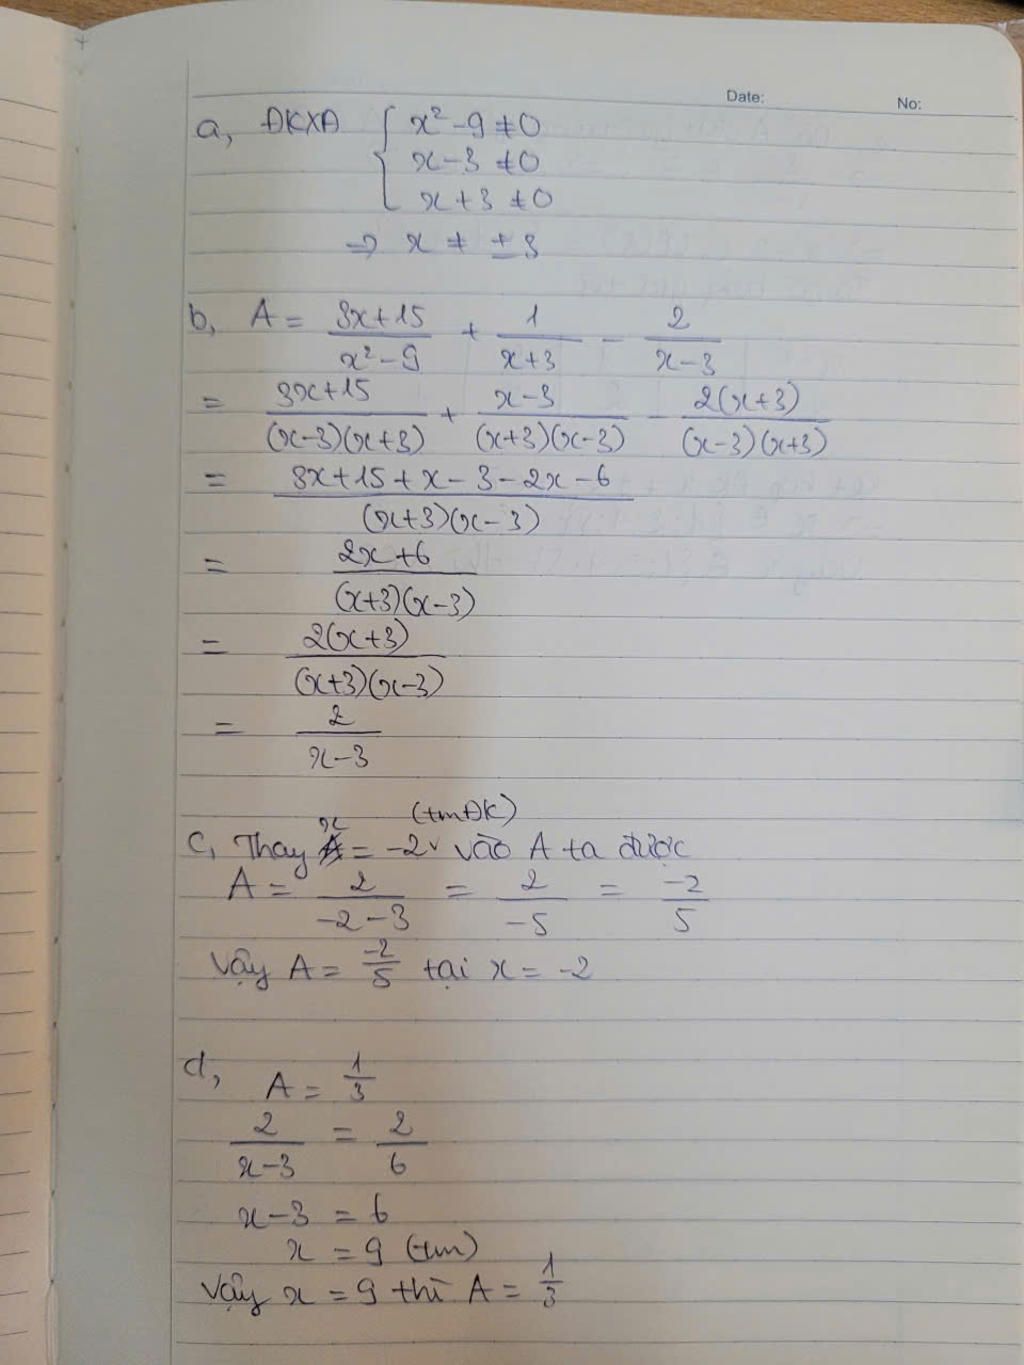 Date: No:
a, ĐKXĐ { x² - 9 ≠ 0
x - 3 ≠ 0
x + 3 ≠ 0
⇒ x ≠ ± 3
b, A = (3x+15)/(x²-9) + 1/(x+3) - 2/(x-3)
= (3x+15)/((x-3)(x+3)) + (x-3)/((x+3)(x-3)) - 2(x+3)/((x-3)(x+3))
= (3x+15+x-3-2x-6)/((x+3)(x-3))
= (2x+6)/((x+3)(x-3))
= 2(x+3)/((x+3)(x-3))
= 2/(x-3)
c, Thay x = -2 (tmĐK) vào A ta được
A = 2/(-2-3) = 2/(-5) = -2/5
Vậy A = -2/5 tại x = -2
d, A = 1/3
2/(x-3) = 2/6
x-3 = 6
x = 9 (tm)
Vậy x = 9 thì A = 1/3